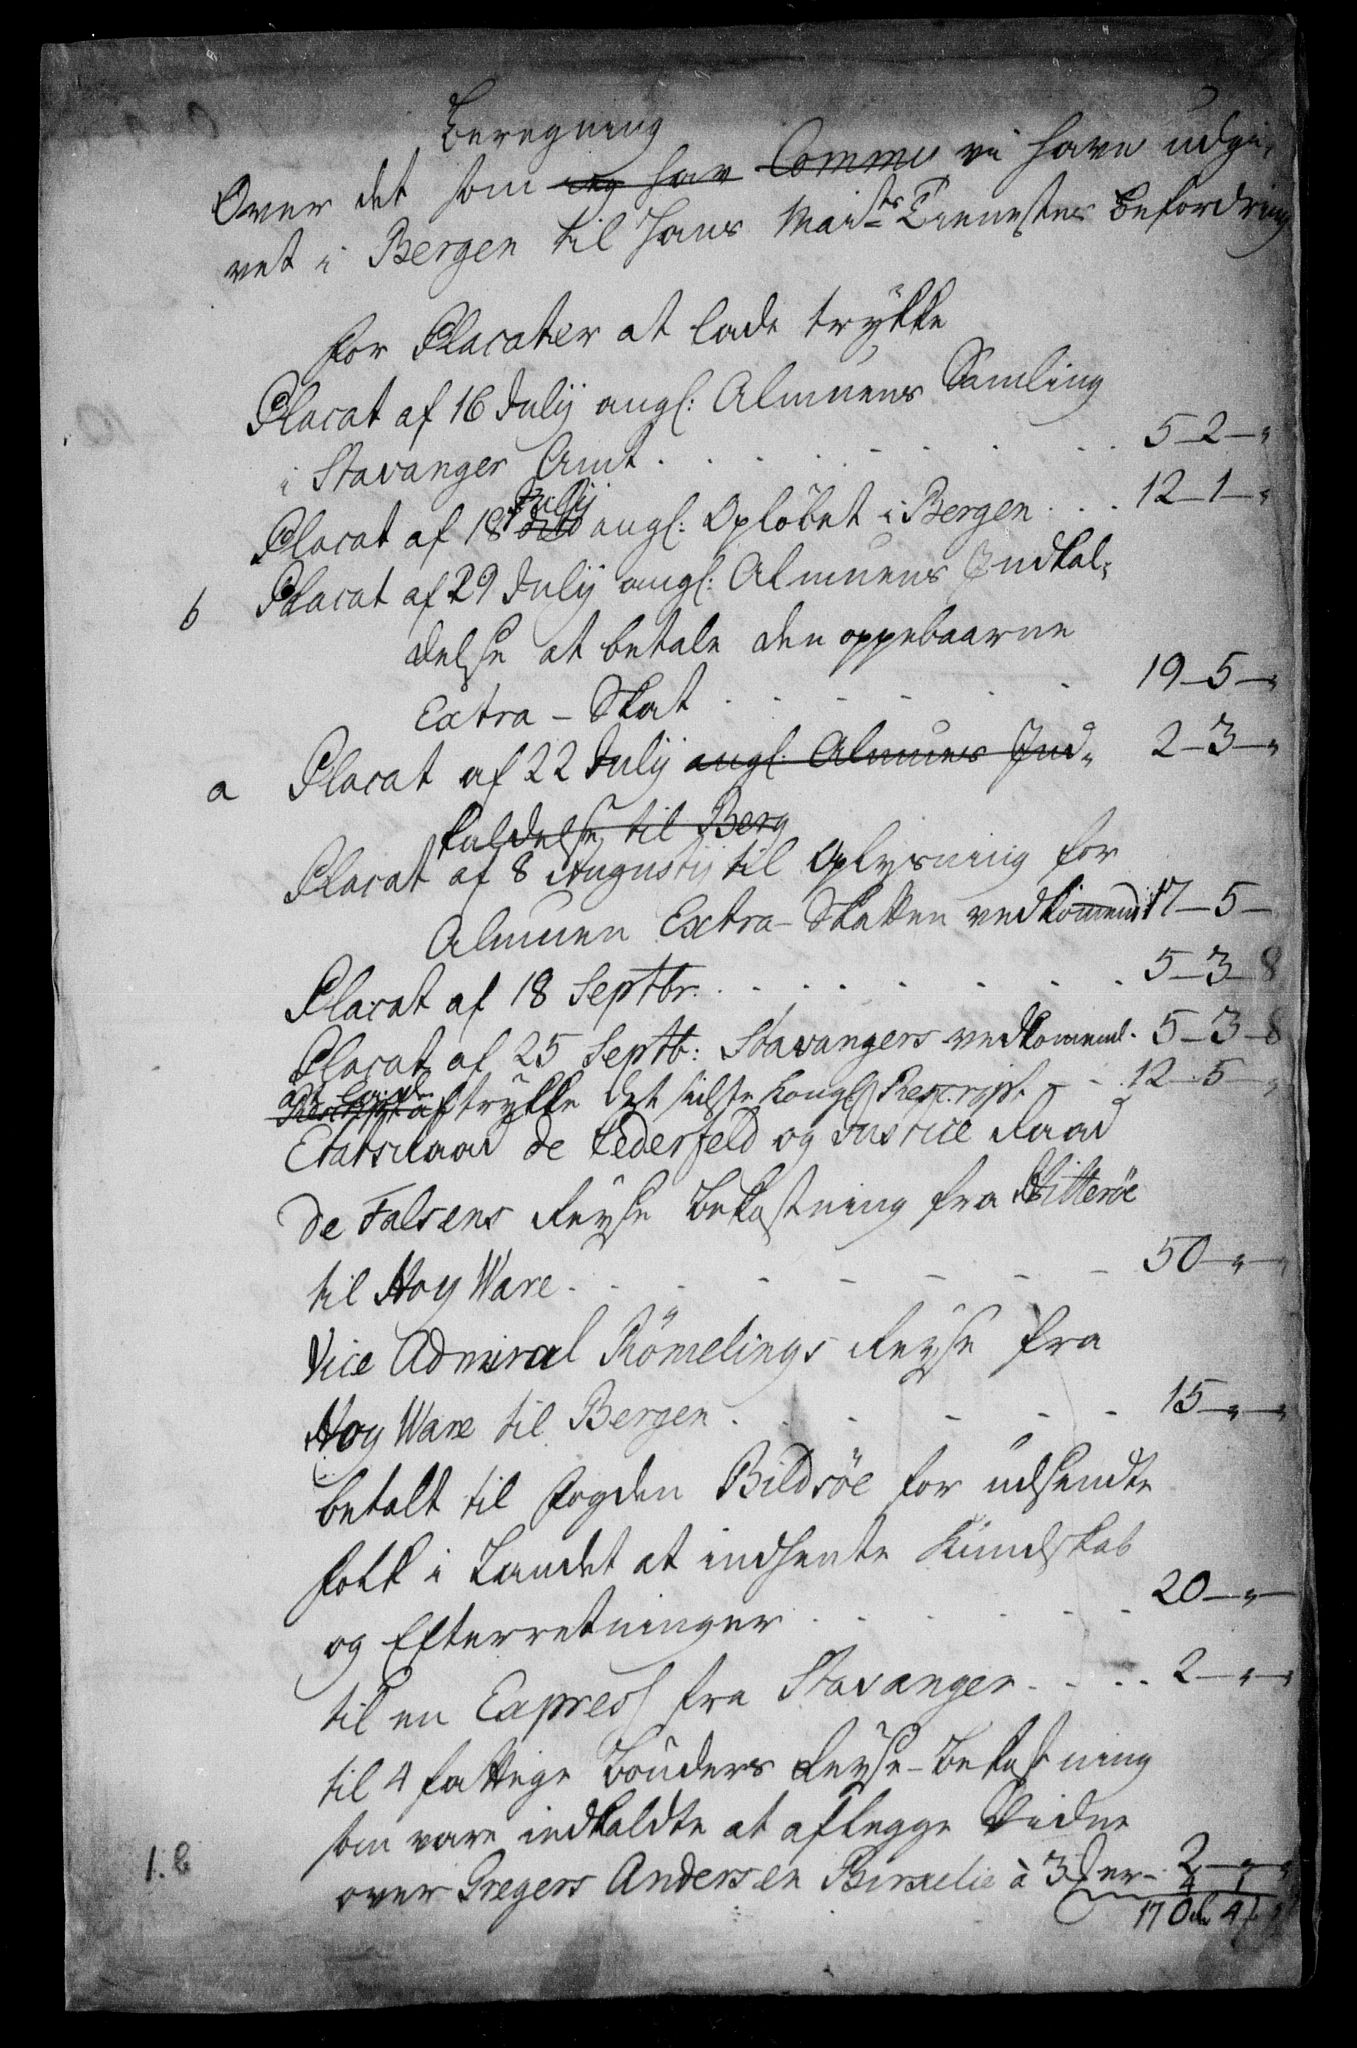 Beregning
Over det som jeg har Comms vi have udgi-
vet i Bergen til Hans Maists Tienestes Befordring
for Placater at lade trykke
Placat af 16 Julij angl: Almuens Samling
i Stavanger Amt . . . . . . . . 5 - 2 - "
Placat af 18 dito Julij angl: Opløbet i Bergen . . . 12 - 1 - "
b Placat af 29 Julij angl: Almuens Indkal-
delse at betale den oppebaarne
Extra - Skat . . . . . . 19 - 5 - "
a Placat af 22 Julij angl: Almues Ind- 2 - 3 - "
kaldelse til Berg
Placat af 8 Augustij til Oplysning for
Almuen Extra - Skatten vedkomend: 17 - 5 -
Placat af 18 Septbr. . . . . . . . 5 - 3 - 8
Placat af 25 Septb: Stavangers vedkommend. 5 - 3 - 8
aftrykke det sidste Kongl. Rescript - - 12 - 5 - "
Etatsraad de Cederfeld og Justice Raad
de Falsens Reyse Bekostning fra Hitterøe
til Hoy Ware . . - - - - - 50 - " - "
Vice Admiral Römelings Reyse fra
Hoy Ware til Bergen . . . - - - 15 - " - "
betalt til fogden Bildsöe for udsendte
folk i Landet at indhente Kundskab
og Efterretninger . . . . . . 20 - " -
til en Express fra Stavanger . . . . 2 - " - "
til 4 fattige Bönders Reyse-Bekostning
som vare indkaldte at aflegge Vidne
1. b over Gregers Andersen à 3 2 - " - "
170 4